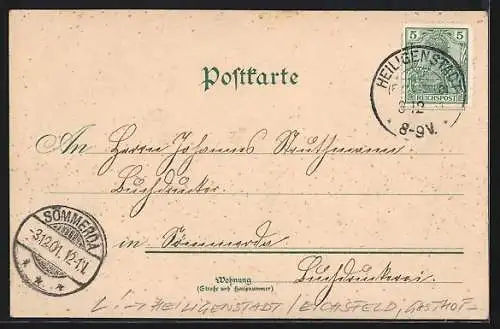 5
REICHSPOST
HEILIGENSTADT
3 12
* 8-9V. *
Postkarte
An Herrn Johannes Struthmann
Buchdrucker
in Sömmerda
Buchdruckerei.
SÖMMERDA
-3.12.01. 12-1N.
* * *
Wohnung
(Straße und Hausnummer)
HEILIGENSTADT / EICHSFELD, GASTHOF -